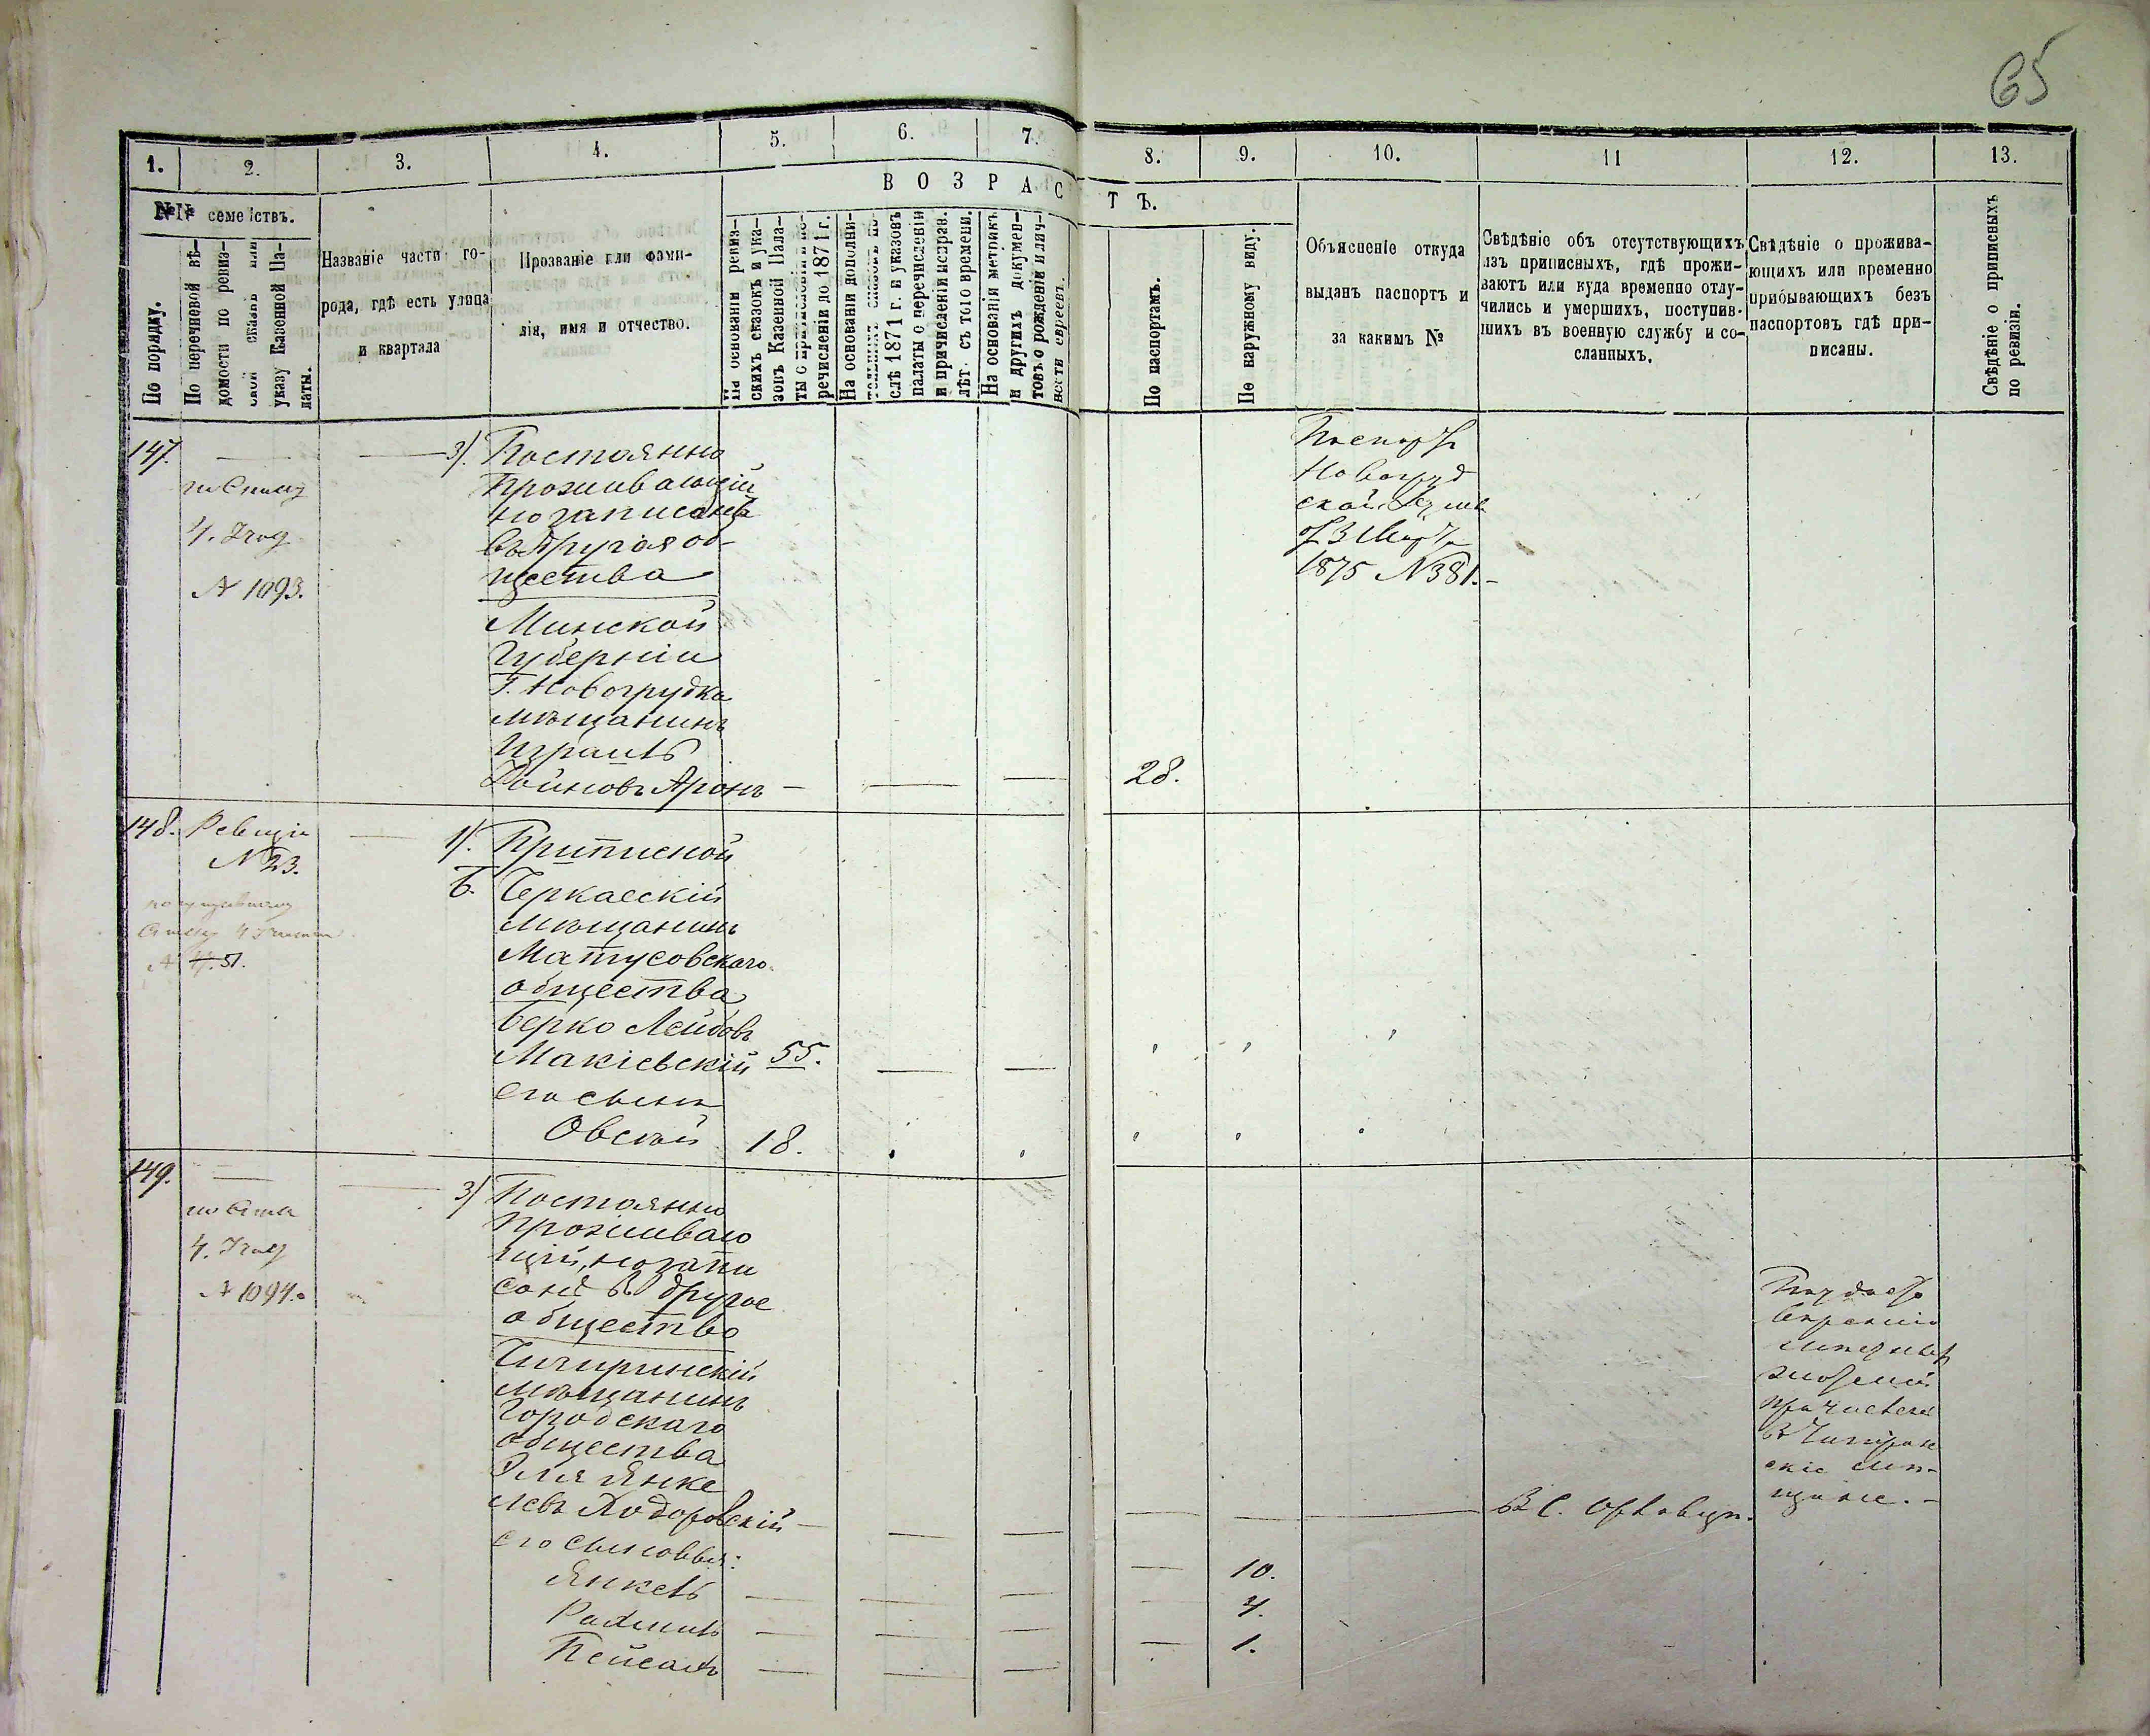 65
1. 2. 3. 4. 5. 6. 7. 8. 9. 10. 11 12. 13.
ВОЗРАСТЪ.
№№ семействъ.
По порядку.
По перечневой вѣ-
домости по ревиз-
ской сказкѣ или
указу Казенной Па-
латы.
Названіе части го-
рода, гдѣ есть улица
и квартала
Прозваніе или фами-
лія, имя и отчество.
На основаніи ревиз-
скихъ сказокъ и ука-
зовъ Казенной Пала-
ты с
речисленіи до 1871 г.
На основаніи дополни-
слѣ 1871 г. и указовъ
палаты о перечисленіи
и причисленіи исправ.
лѣт. съ того времени.
На основаніи метрикъ
и другихъ докумен-
товъ о рожденіи и лич-
ности евреевъ.
По паспортамъ.
По наружному виду.
Объясненіе откуда
выданъ паспортъ и
за какимъ №
Свѣдѣніе объ отсутствующихъ
изъ приписныхъ, гдѣ прожи-
ваютъ или куда временно отлу-
чились и умершихъ, поступив-
шихъ въ военную службу и со-
сланныхъ.
Свѣдѣніе о прожива-
ющихъ или временно
прибывающихъ безъ
паспортовъ гдѣ при-
писаны.
Свѣдѣніе о приписныхъ
по ревизіи.
147.
№ 1093.
3). Постоянно
проживающій
но записанъ
въ другія об-
щества
Минской
Губерніи
Г. Новогрудка
мѣщанинъ
Израиль
Хаимовъ Аронъ —
28.
Паспортъ
Новогруд
ской Думы
от 3 Марта
1875 №381.-
148. Ревизіи
№ 23.
51.
1). Приписной
Б. Черкасскій
мѣщанинъ
Матусовскаго
общества
Берко Лейбовъ
Макіевскій 55.
его сынъ
Овсѣй 18.
149.
№ 1094.
3) Постоянно
проживаю
щій, но запи
санъ въ другое
общество
Чигиринскій
мѣщанинъ
Городскаго
общества
Эля Янке
левъ Ходоровскій —
его сыновья:
Янкель 10.
Рахмиль 4.
Пейсахъ 1.
въ
скіе мѣ-
щане. -